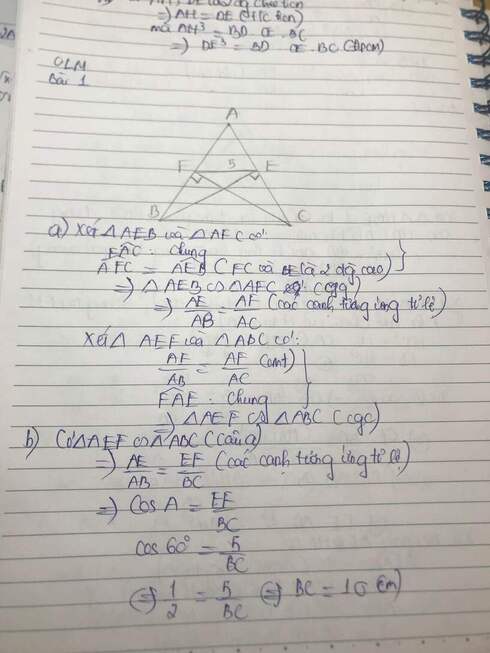 =) AH = DE
mà AH³ = BD . CE . BC
=) DE³ = BD . CE . BC (đpcm)
OLM
Bài 1
A
F 5 E
B C
a) Xét △AEB và △AFC có:
EAC: chung
AFC = AEB (FC và BE là 2 đg cao)
=) △AEB ∽ △AFC (gg)
=) AE/AB = AF/AC (các cạnh tương ứng tỉ lệ)
Xét △AEF và △ABC có:
AE/AB = AF/AC (cmt)
FAE: chung
=) △AEF ∽ △ABC (cgc)
b) Có △AEF ∽ △ABC (câu a)
=) AE/AB = EF/BC (các cạnh tương ứng tỉ lệ)
=) Cos A = EF/BC
cos 60° = 5/BC
(=) 1/2 = 5/BC (=) BC = 10 (cm)